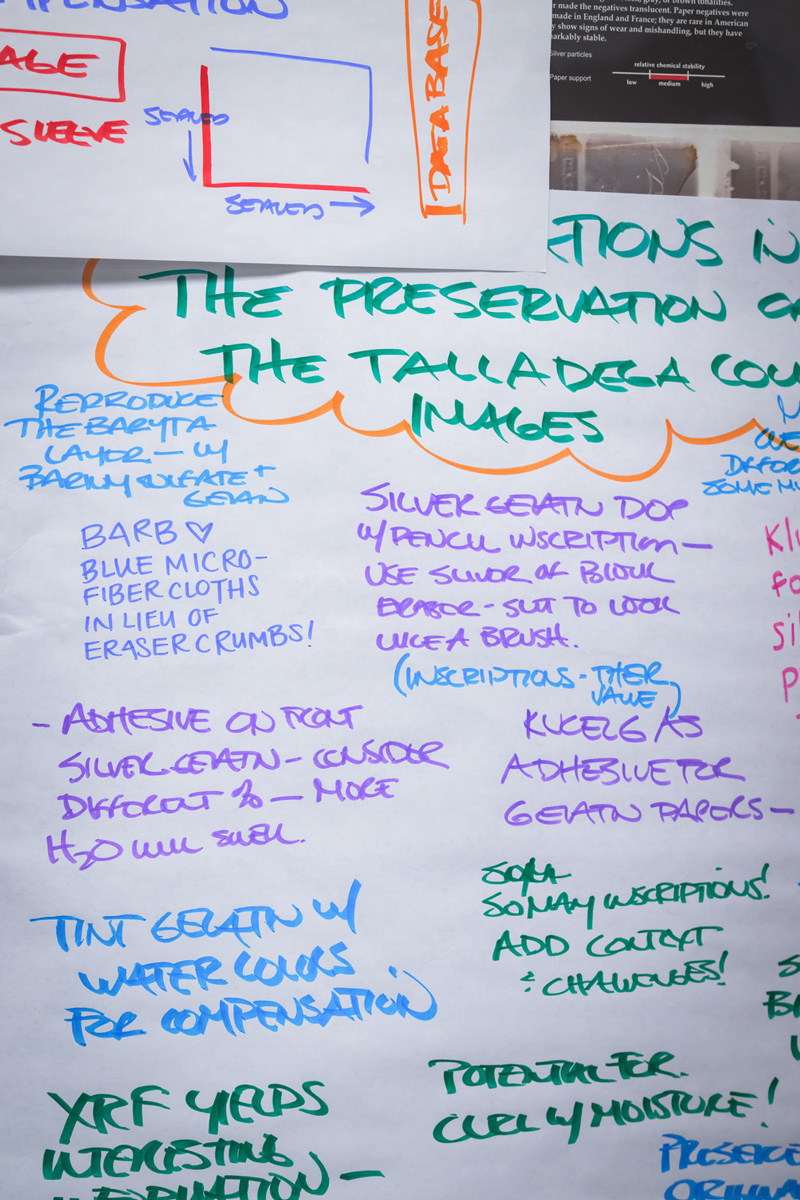 MPENSATION
AGE
SLEEVE
SEALED
SEALED
DATABASE
made the negatives translucent. Paper negatives were
made in England and France; they are rare in American
show signs of wear and mishandling, but they have
arkably stable.
Silver particles
Paper support
relative chemical stability
low medium high
TIONS IN
THE PRESERVATION
THE TALLADEGA COU
IMAGES
REPRODUCE
THE BARYTA
LAYER – W/
BARIUM SULFATE +
GELATIN
BARB ♡
BLUE MICRO-
FIBER CLOTHS
IN LIEU OF
ERASER CRUMBS!
SILVER GELATN DOP
W/ PENCIL INSCRIPTION –
USE SLIVER OF BLOCK
ERASER - SLIT TO LOOK
LIKE A BRUSH.
(INSCRIPTIONS - THEIR
VALUE)
- ADHESIVE ON FRONT
SILVER GELATN - CONSIDER
DIFFERENT % – MORE
H2O WILL SWELL.
KLUCEL G AS
ADHESIVE FOR
GELATN PAPERS –
TINT GELATIN W/
WATER COLORS
FOR COMPENSATION
SO MANY INSCRIPTIONS!
ADD CONTEXT
& CHALLENGES!
XRF YIELDS
INTERESTING
INFORMATION –
POTENTIAL FOR
CURL W/ MOISTURE!
Klu
fo
sil
P